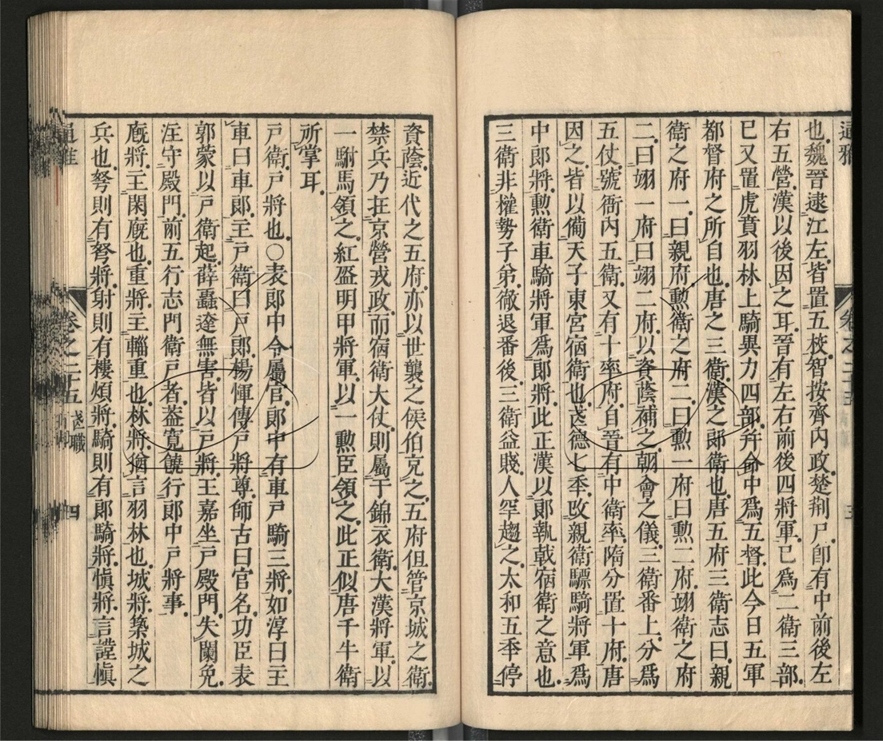 通雅
卷之二十五
三
也魏晉逮江左皆置五校智按齊内政楚荆尸卽有中前後左
右五營漢以後因之耳晉有左右前後四將軍已爲二衛三部
巳又置虎賁羽林上騎異力四部幷命中爲五督此今日五軍
都督府之所自也唐之三衛漢之郎衛也唐五府三衛志曰親
衛之府一曰親府勲衛之府二曰勲一府曰勲二府翊衛之府
二曰翊一府曰翊二府以資蔭補之朝會之儀三衛番上分爲
五仗號衙内五衛又有十率府自晉有中衛率隋分置十府唐
因之皆以備天子東宮宿衛也武德七秊改親衛驃騎將軍爲
中郎將勲衛車騎將軍爲郎將此正漢以郎執戟宿衛之意也
三衛非權勢子弟徹退番後三衛益賤人罕趨之太和五秊停
資蔭近代之五府亦以世襲之侯伯充之五府但管京城之衛
禁兵乃在京營戎政而宿衛大仗則屬于錦衣衛大漢將軍以
一駙馬領之紅盔明甲將軍以一勲臣領之此正似唐千牛衛
所掌耳
戸衛戸將也○表郎中令屬官郎中有車戸騎三將如淳曰主
車曰車郎主戸衛曰戸郎楊惲傳戸將尊師古曰官名功臣表
郭蒙以戸衛起薛嚚遬無害皆以戸將王嘉坐戸殿門失闌免
注守殿門前五行志門衛戸者葢寬饒行郎中戸將事
廐將主閑廐也重將主輜重也林將猶言羽林也城將築城之
兵也弩則有弩將射則有樓煩將騎則有郎騎將愼將言謹愼
通雅
卷之二十五
武職
四